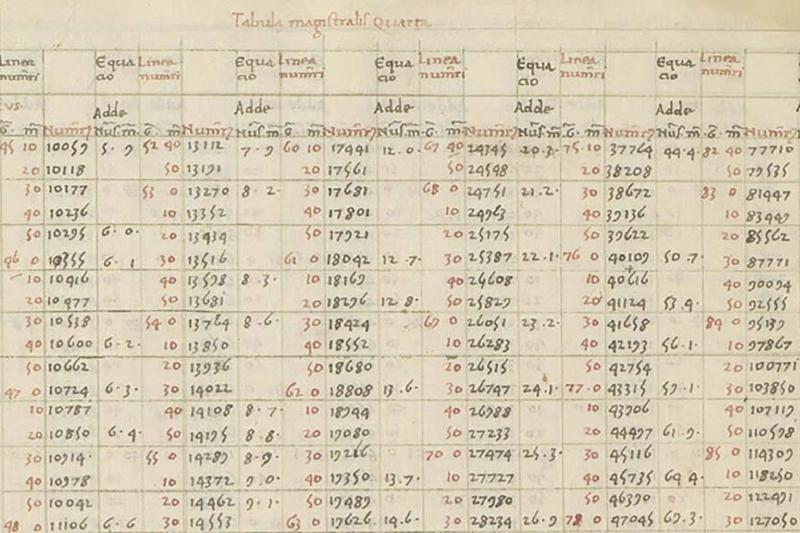 Tabula magistralis Quarta
Linea Equa Linea Equa Linea Equa Linea Equa Linea Equa Linea
numeri cio numeri cio numeri cio numeri cio numeri cio numeri
Adde Adde Adde Adde Adde A
G m Numeri Nus m G m Numeri Nus m G m Numeri Nus m G m Numeri Nus m G m Numeri Nus m G m Numeri
45 10 10059 5·9 52 40 13112 7·9 60 10 17441 12·0· 67 40 24345 20·3· 75·10 37764 44·4· 82 40 77710
20 10118 50 13191 20 17561 50 24548 20 38208 50 79535
30 10177 53 0 13270 8·2· 30 17681 68 0 24751 21·2· 30 38672 83 0 81447
40 10236 10 13352 40 17801 10 24963 40 39136 10 83449
50 10295 6·0· 20 13434 50 17921 20 25175 50 39622 20 85562
46 0 10355 6·1 30 13516 61 0 18042 12·7· 30 25387 22·1· 76 0 40109 50·7· 30 87771
10 10416 40 13598 8·3· 10 18169 40 25608 10 40616 40 90094
20 10477 50 13681 20 18296 12·8· 50 25829 20 41124 53·4· 50 92555
30 10538 54 0 13764 8·6· 30 18424 69 0 26051 23·2· 30 41658 84 0 95139
40 10600 6·2· 10 13850 40 18552 10 26283 40 42193 56·1· 10 97867
50 10662 20 13936 50 18680 20 26515 50 42754 20 100771
47 0 10724 6·3· 30 14022 62 0 18808 13·6· 30 26747 24·1· 77·0 43315 59·1· 30 103850
10 10787 40 14108 8·7· 10 18944 40 26988 10 43906 40 107119
20 10850 6·4· 50 14195 8·8· 20 19080 50 27233 20 44497 61·9· 50 110598
30 10914· 55 0 14289 8·9· 30 19216 70 0 27474 25·3· 30 45116 85 0 114309
40 10978 10 14372 9·0· 40 19350 13·7· 10 27727 40 45735 64 4· 10 118250
50 10042 20 14462 9·1· 50 19489 20 27980 50 46390 20 122491
48 0 11106 6·6 30 14553 63 0 19626 14·6· 30 28234 26·9 78 0 47045 69·3· 30 127050